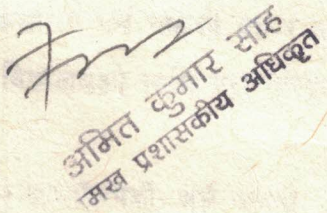 अमित कुमार साह
प्रशासकीय अधिकृत